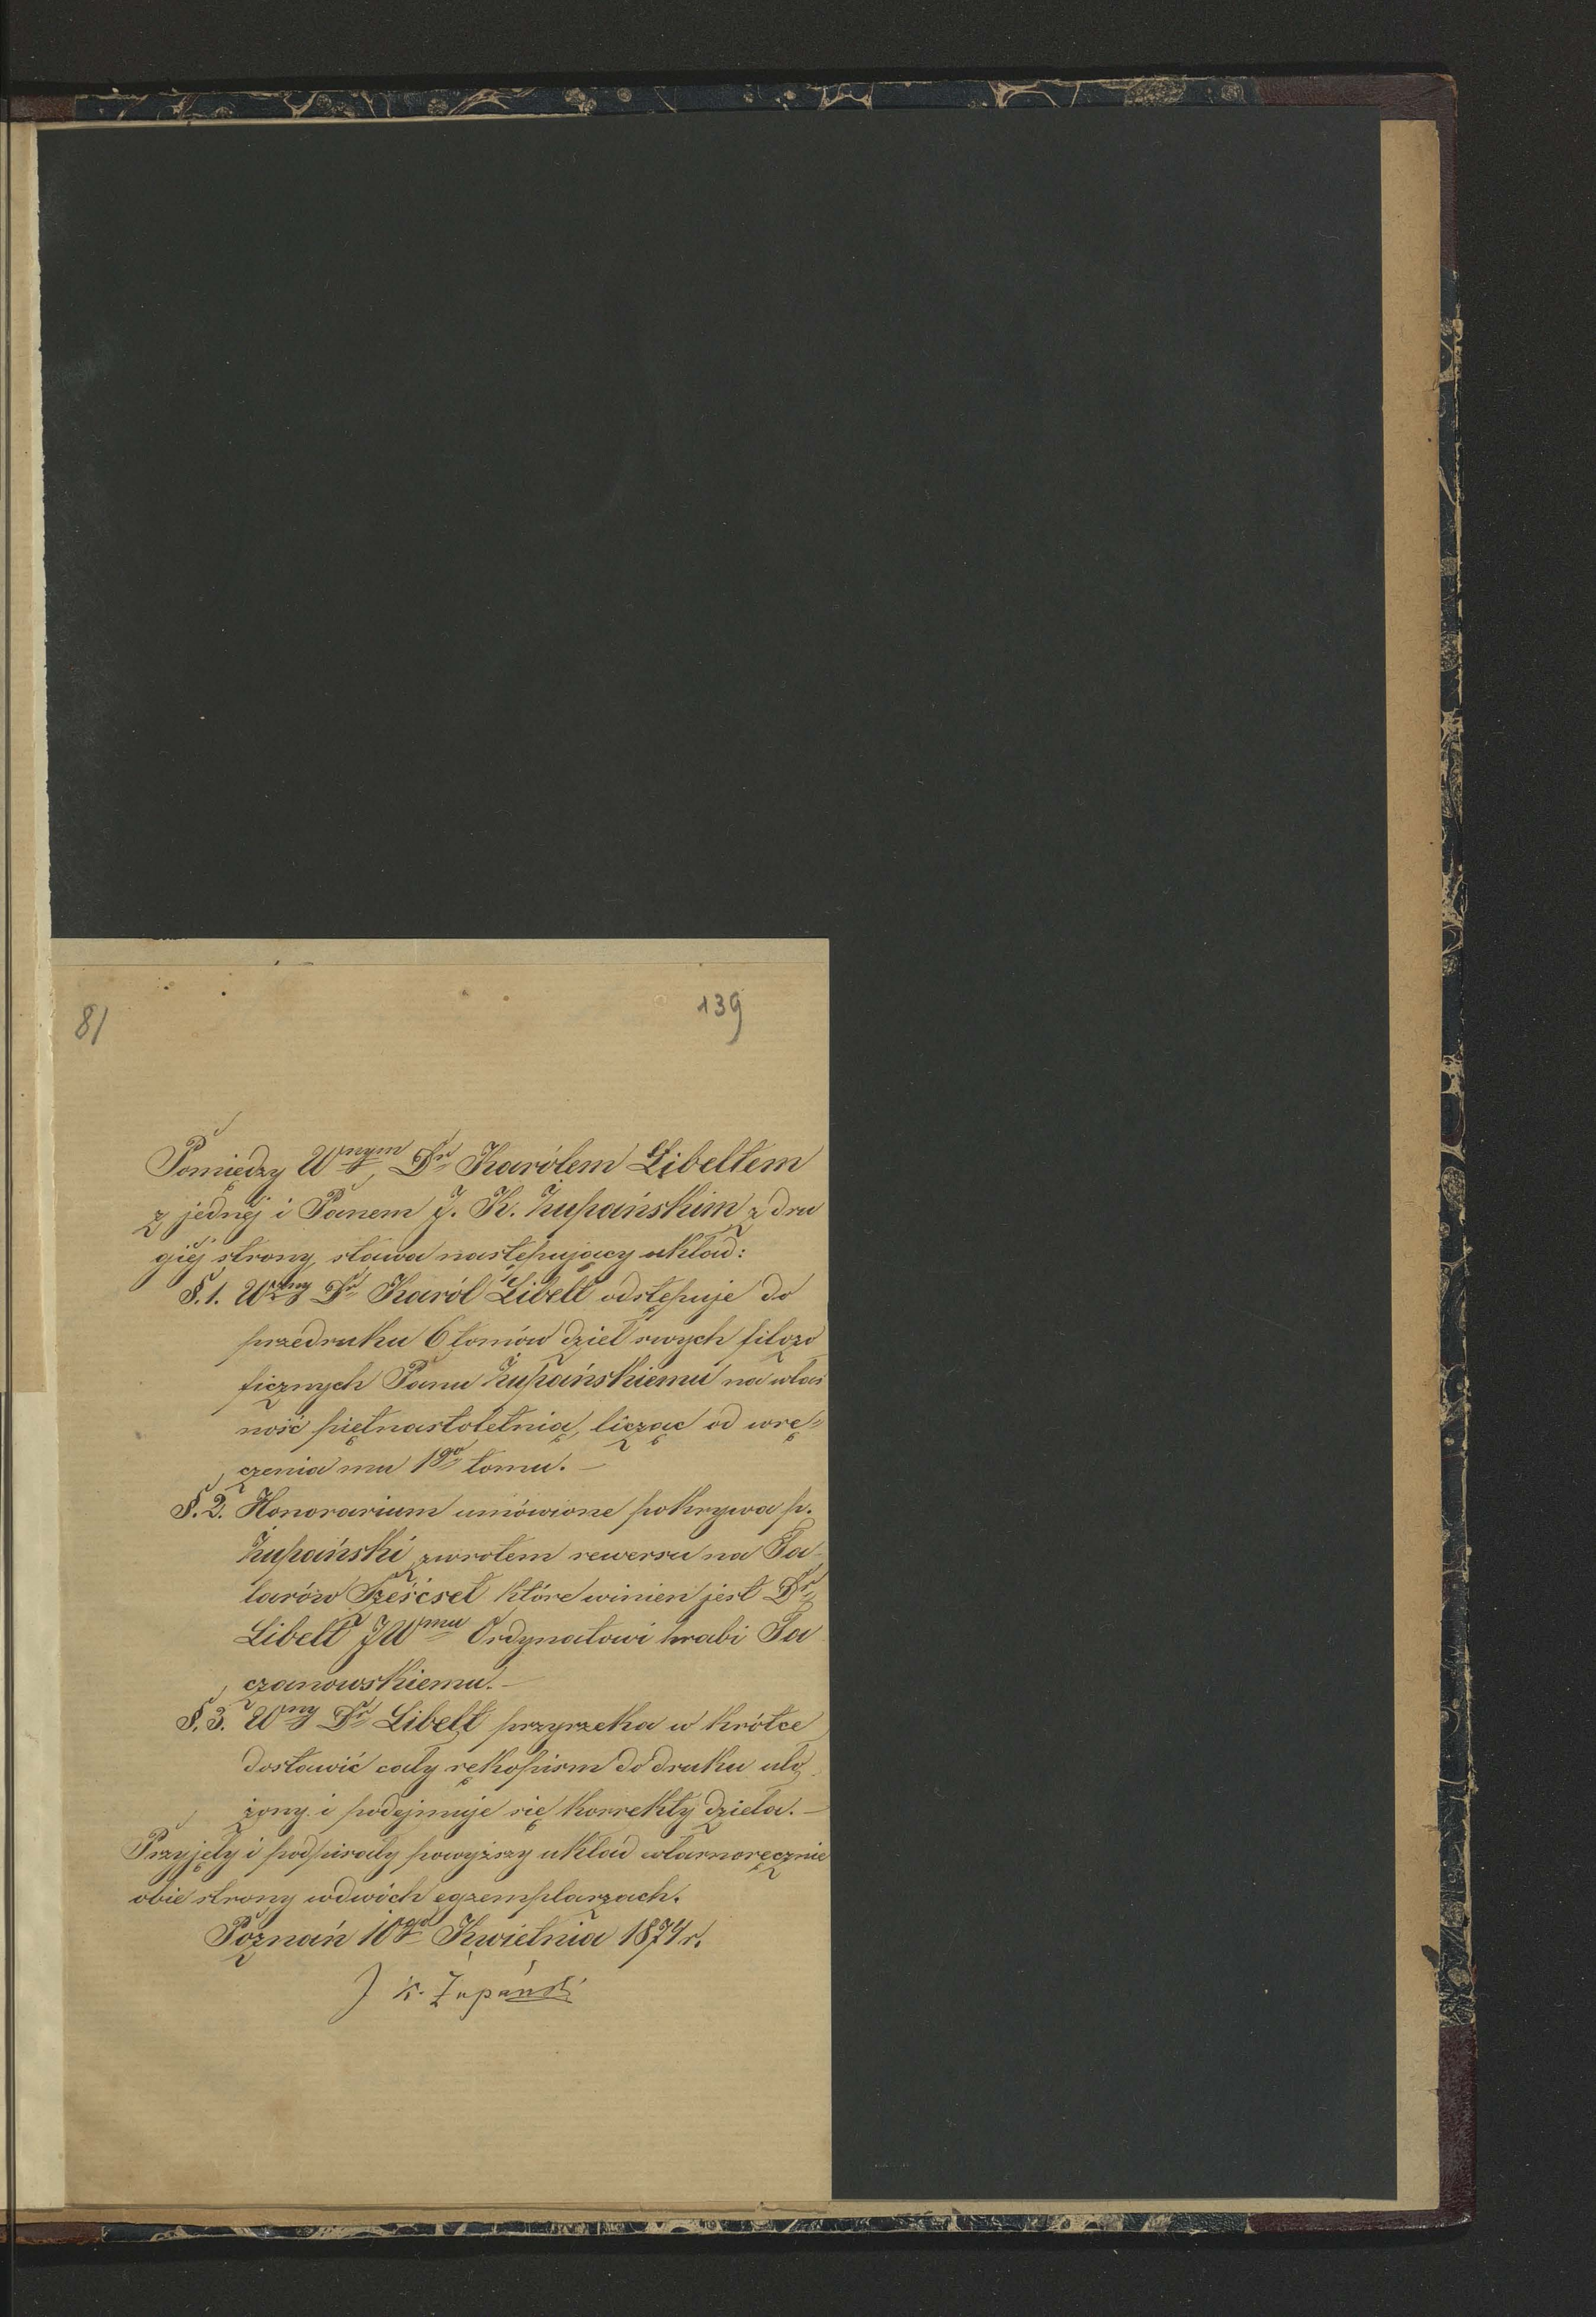 81
139
Pomiędzy Wnym Dr Karólem Libeltem
z jednéj i Panem J. K. Żupańskim z dru
giéj strony, stawa następujący układ:
§. 1. Wżny Dr Karól Libelt odstępuje do
przedruku 6 tomów dzieł swych filozo
ficznych Panu Żupańskiemu na włas
ność piętnastoletnią, licząc od wrę=
czenia mu 1go tomu. —
§. 2. Honorarium umówione pokrywa p.
Żupański zwrotem rewersu na Ta-
larów Sześćset które winien jest Dr
Libelt JWmu Ordynatowi hrabi Ta
czanowskiemu. —
§. 3. Wny Dr Libelt przyrzeka w krótce
dostawić cały rękopism do druku uło
żony i podejmuje się korrekty dzieła. —
Przyjęły i podpisały powyższy układ własnoręcznie
obie strony w dwóch egzemplarzach.
Poznań 10go Kwietnia 1874 r.
J K. Żupański